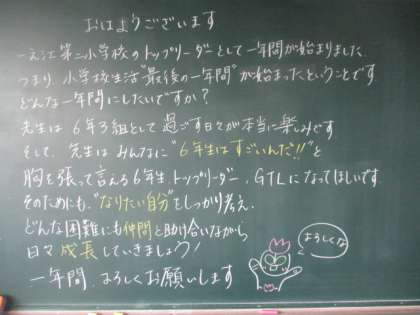 おはようございます
一之江第二小学校のトップリーダーとして一年間が始まりました。
つまり、小学校生活"最後の一年間"が始まったということです
どんな一年間にしたいですか？
先生は6年3組として過ごす日々が本当に楽しみです
そして、先生はみんなに"6年生はすごいんだ!!"と
胸を張って言える6年生トップリーダー、GTLになってほしいです。
そのためにも、"なりたい自分"をしっかり考え、
どんな困難にも仲間と助け合いながら
日々成長していきましょう！
一年間、よろしくお願いします
よろしくな